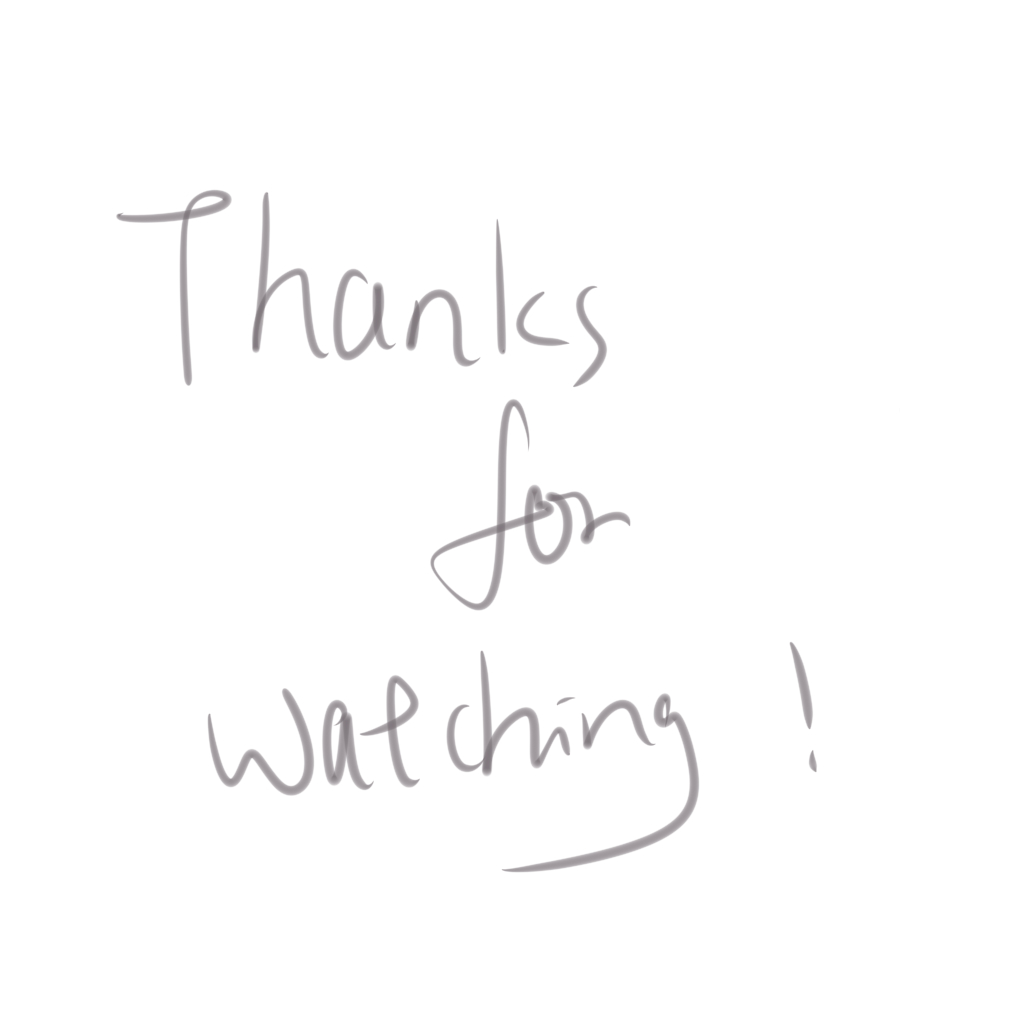 Thanks
for
watching!